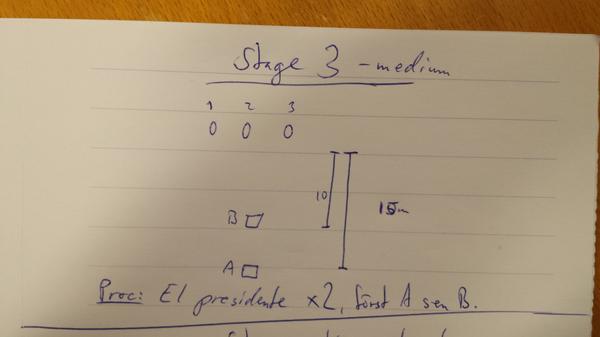 Stage 3 - medium
1 2 3
0 0 0
10
15m
B
A
Proc: El presidente x2, först A sen B.